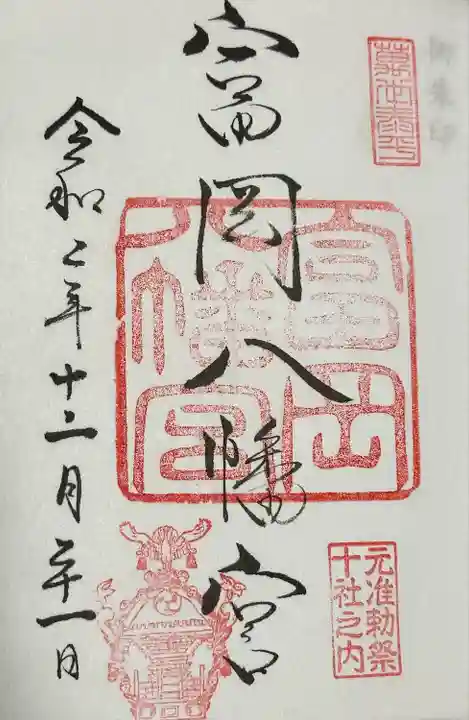 富岡八幡宮
令和二年十二月二十一日
富岡八幡宮
元准勅祭
十社之内